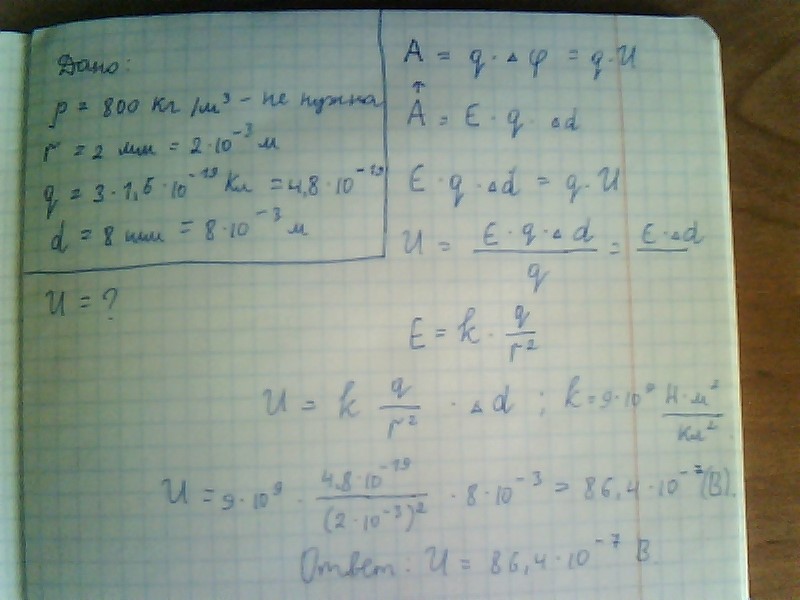 Дано:
ρ = 800 кг/м³ - не нужна
r = 2 мм = 2·10⁻³ м
q = 3·1,6·10⁻¹⁹ Кл = 4,8·10⁻¹⁹
d = 8 мм = 8·10⁻³ м
U = ?
A = q·Δφ = q·U
A = E·q·Δd
E·q·Δd = q·U
U = E·q·Δd / q = E·Δd
E = k · q / r²
U = k q / r² · Δd ; k = 9·10⁹ Н·м² / Кл²
U = 9·10⁹ · 4,8·10⁻¹⁹ / (2·10⁻³)² · 8·10⁻³ = 86,4·10⁻⁷ (В).
Ответ: U = 86,4·10⁻⁷ В